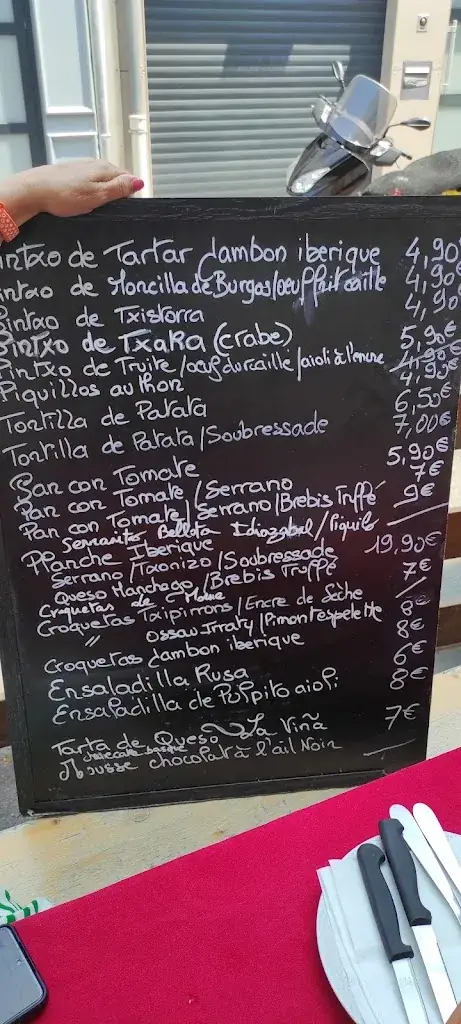 intxo de Tartar Jambon iberique 4,90
intxo de Moncilla de Burgos/oeuf frit caille 4,90€
Pintxo de Txistorra 4,90
Pintxo de TxaKa (crabe) 5,90€
Pintxo de Truite/oeuf dur caille/aioli à l'encre 4,90€
Piquillos au thon 4,90
Tortilla de Patata 6,50€
Tortilla de Patata/Soubressade 7,00€
Pan con Tomate 5,90€
Pan con Tomate/Serrano 7€
Pan con Tomate/Serrano/Brebis Truffé 9€
Planche Iberique 19,90€
Bellota Idiazabal/Piquillo
Serrano/Txonizo/Soubressade
Queso Manchego/Brebis Truffé
Croquetas de 7€
Croquetas Txipirrons/Encre de Sèche 8€
" Ossau Irraty/Pimont espelette 8€
Croquetas Jambon iberique
Ensaladilla Rusa 6€
Ensaladilla de Pulpito aioli 8€
Tarta de Queso La Viña 7€
Mousse chocolat à l'ail Noir